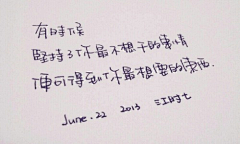 有時候
堅持了你最不想干的事情
便可得到你最想要的東西.
June. 22 2013